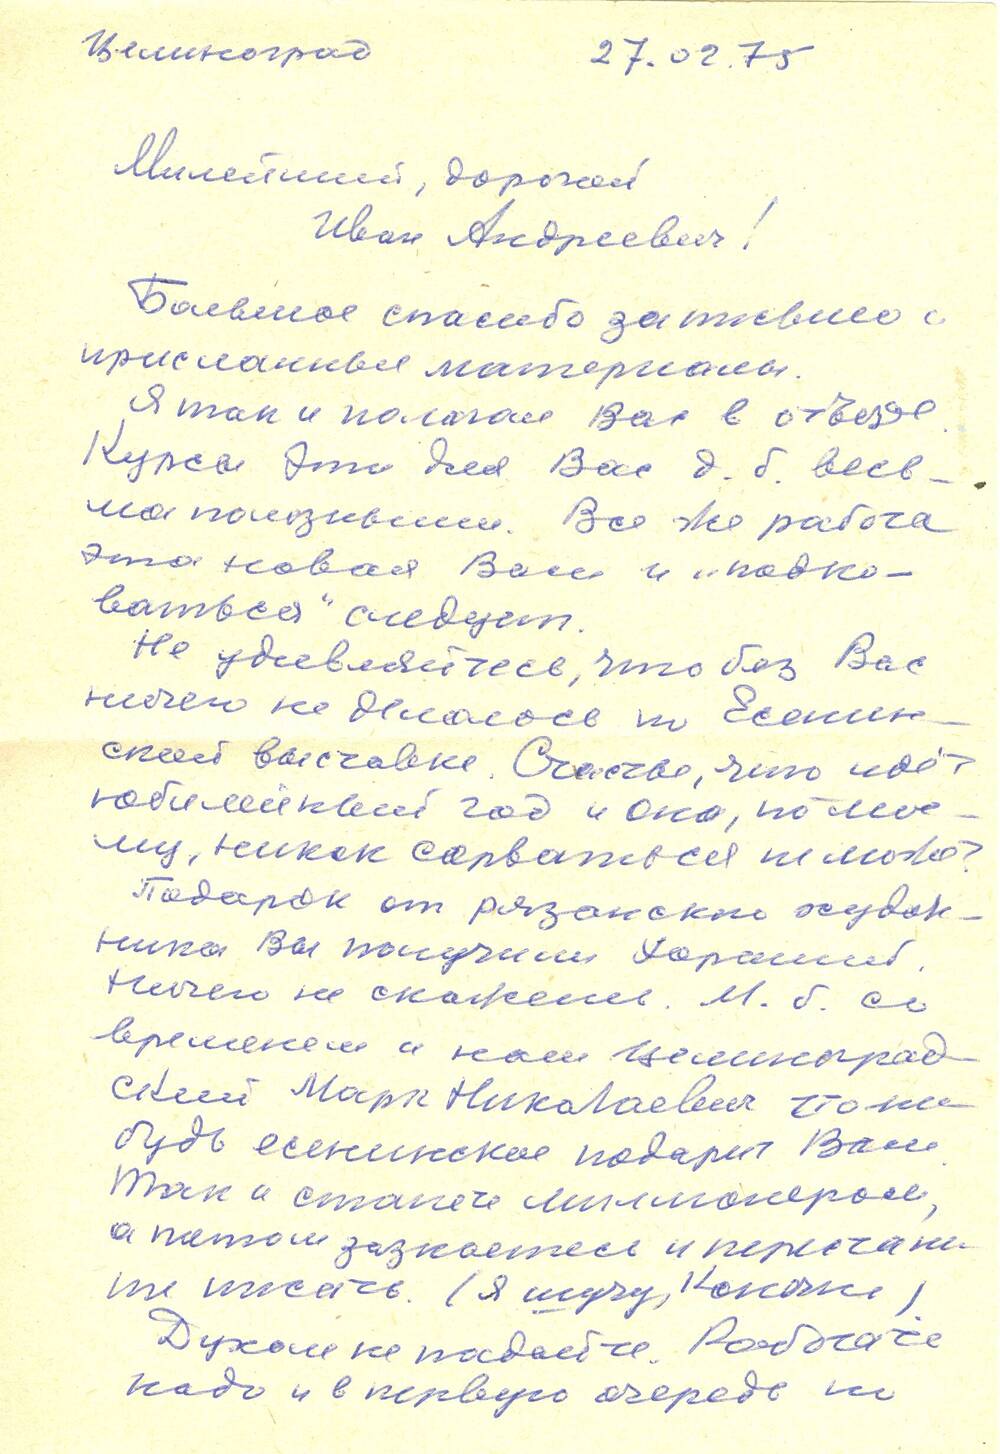 Целиноград 27.02.75
Милейший, дорогой
Иван Андреевич!
Большое спасибо за письмо и
присланные материалы.
Я так и полагал Вас в отъезде.
Курсы эти для Вас д. б. весь-
ма полезными. Все же работа
эта новая Вам и „подко-
ваться" следует.
Не удивляйтесь, что без Вас
ничего не делалось по Есенин-
ской выставке. Счастье, что идёт
юбилейный год и она, по мое-
му, никак сорваться не может
Подарок от рязанского худож-
ника Вы получили хороший.
Ничего не скажешь. М. б. со
временем и наш целиноград-
ский Марк Николаевич что ни
будь есенинское подарит Вам.
Так и станете миллионером,
а потом зазнаетесь и перестане
те писать. (Я шучу, конечно)
Духом не падайте. Работать
надо и в первую очередь по